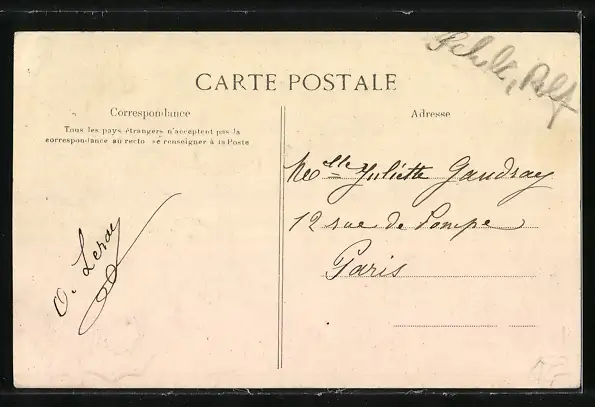 Schulz, Rolf
CARTE POSTALE
Correspondance
Tous les pays étrangers n'acceptent pas la
correspondance au recto se renseigner à la Poste
O. Leroy
Adresse
Melle Juliette Gaudray
12 rue de Pompe
Paris